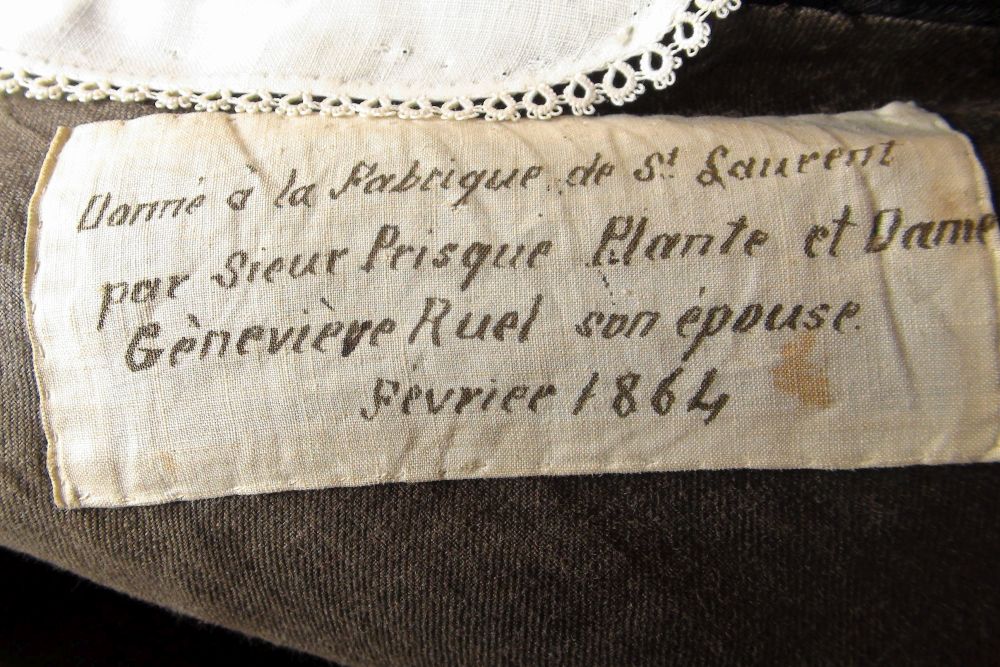 Donné à la Fabrique de St Laurent
par Sieur Prisque Plante et Dame
Gèneviève Ruel son épouse.
Février 1864